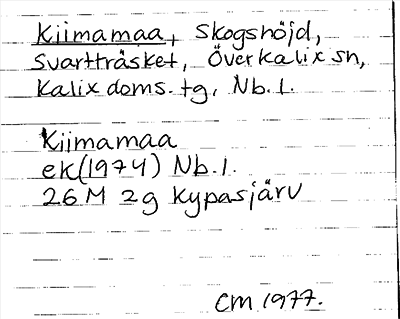 Kiimamaa, Skogshöjd,
Svartträsket, Överkalix sn,
Kalix doms. tg, Nb. l.
Kiimamaa
ek(1974) Nb. l.
26M 2g Kypasjärv
CM 1977.